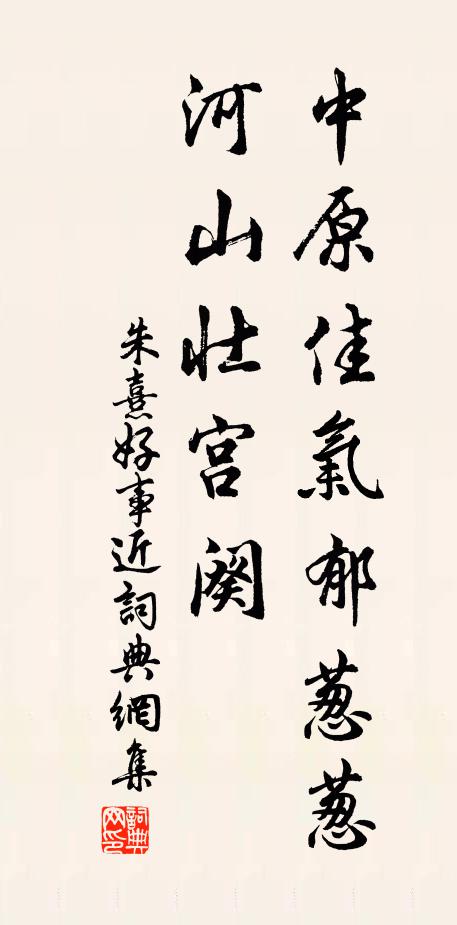 中原佳氣郁葱葱
河山壮宫阕
朱熹好事近詞典網集
詞典网印